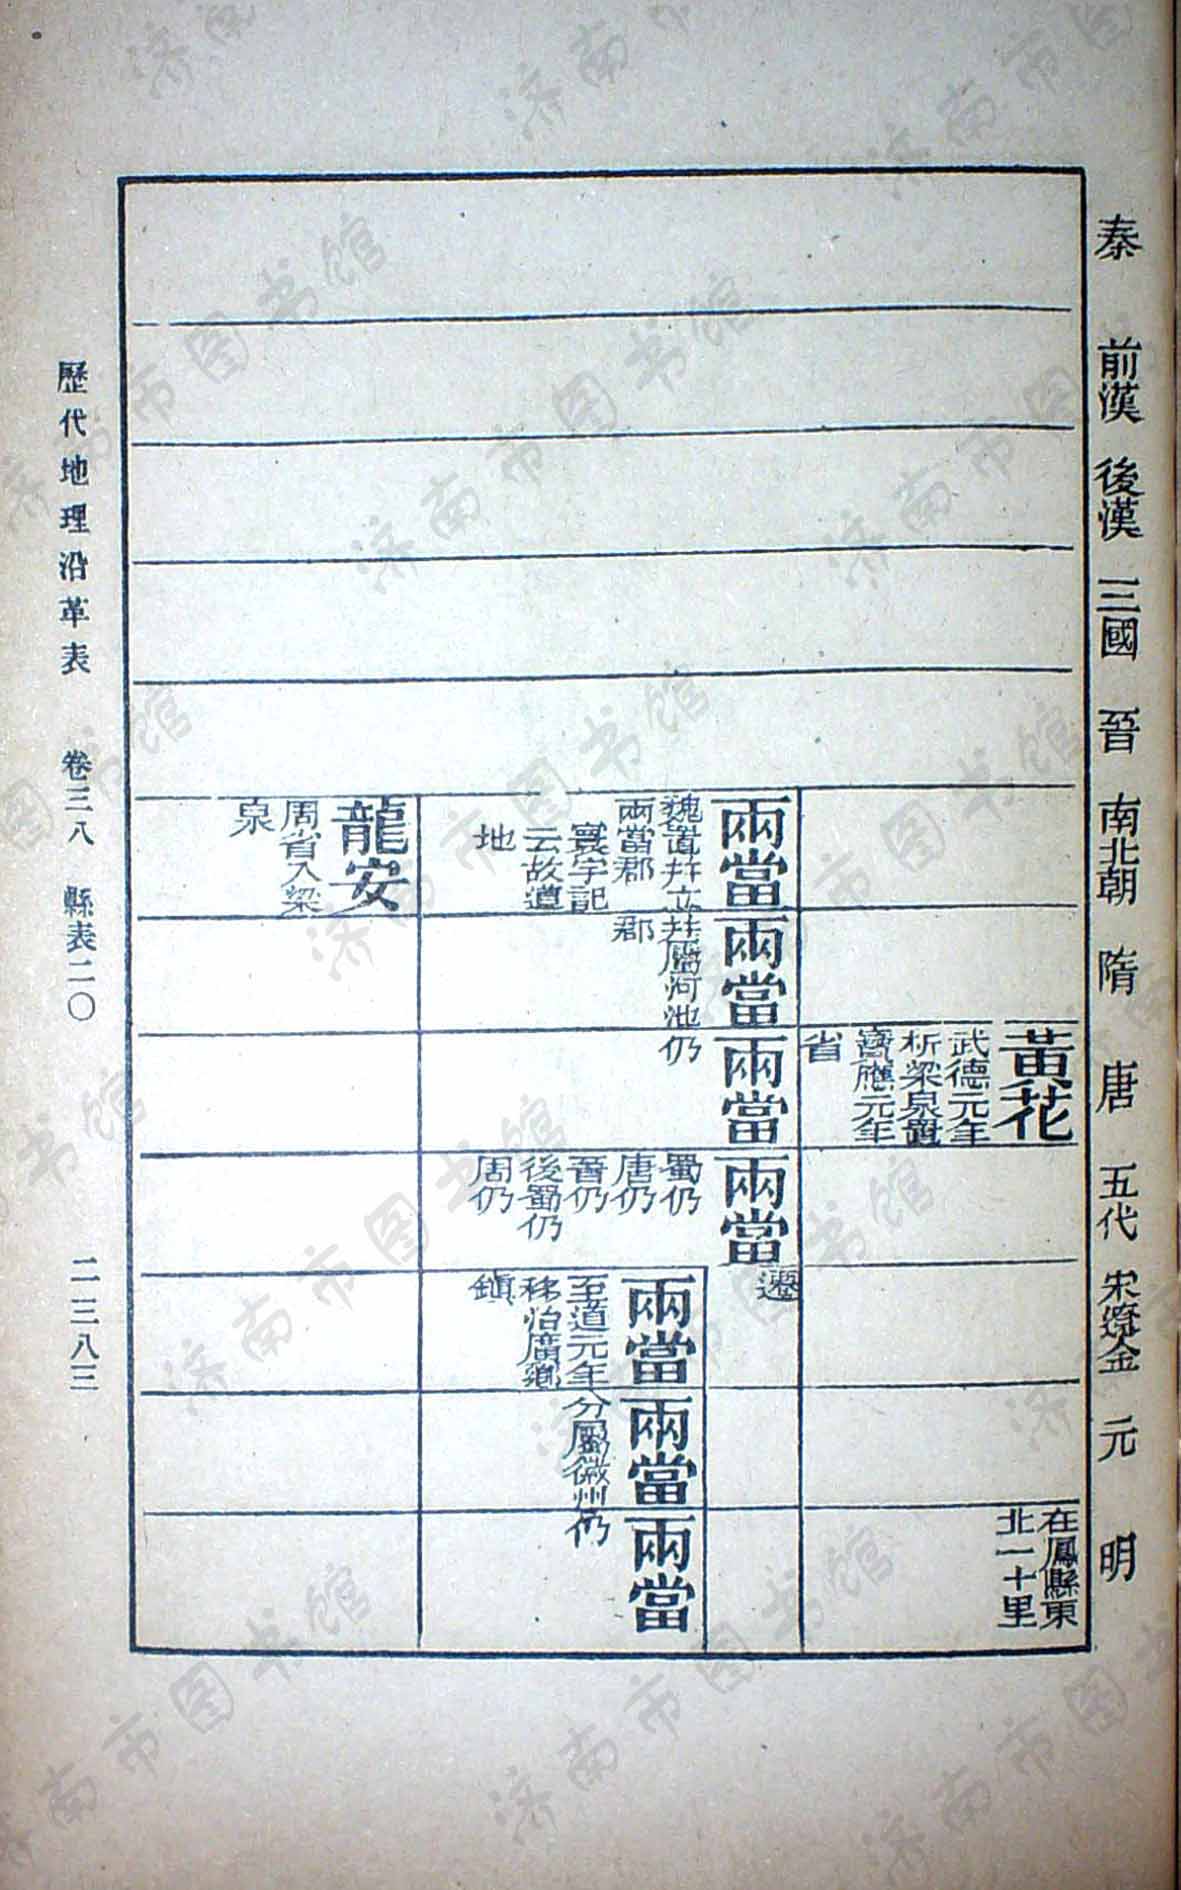 秦
前漢
後漢
三國
晉
南北朝
隋
唐
五代
宋遼金
元
明
黃花
武德元年
析梁泉置
寶應元年
省
在鳳縣東
北一十里
兩當
魏置幷立
兩當郡
寰宇記
云故道
地
兩當
幷屬河池
郡
兩當
仍
兩當
蜀仍
唐仍
晉仍
後蜀仍
周仍
遷
兩當
至道元年
移治廣鄉
鎮
兩當
分屬徽州
兩當
仍
龍安
周省入梁
泉
歷代地理沿革表 卷三八 縣表二〇 二三八三
济南市图书馆